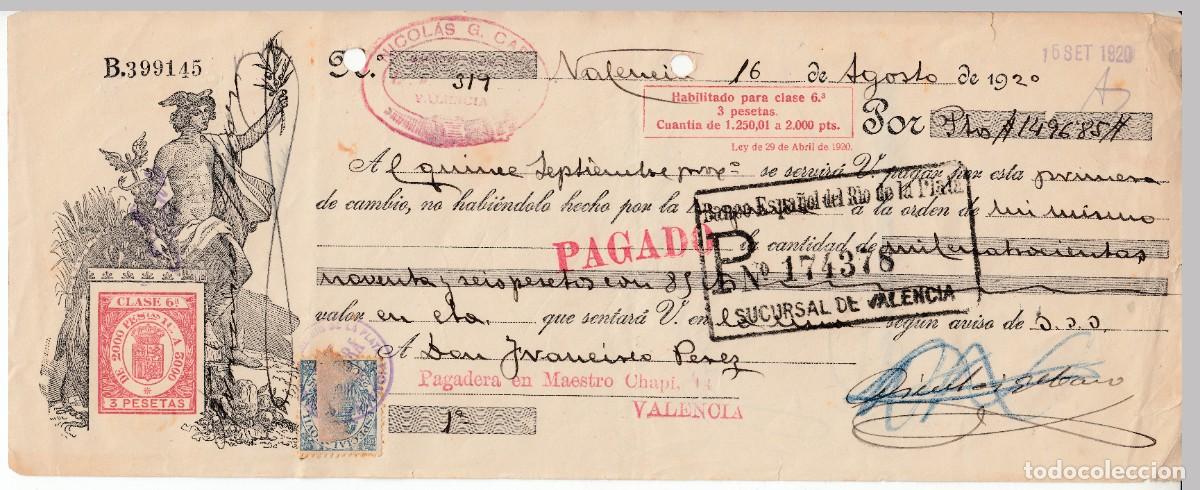 B.399145
NICOLÁS G.
VALENCIA
N.º 319 Valencia 16 de Agosto de 1920
16 SET 1920
Habilitado para clase 6.ª
3 pesetas.
Cuantía de 1.250,01 a 2.000 pts.
Ley de 29 de Abril de 1920.
Por Pts #1496'85#
Al quince Septiembre proxº se servirá V. pagar por esta primera
de cambio, no habiéndolo hecho por la a la orden de mi mismo
Banco Español del Rio de la Plata
PAGADO
la cantidad de mil cuatrocientas
P Nº 174378
noventa y seis pesetas con 85
SUCURSAL DE VALENCIA
valor en cta. que sentará V. en según aviso de S.S.S.
A Don Francisco Perez
Pagadera en Maestro Chapí, 14
VALENCIA
1ª
CLASE 6ª
3 PESETAS
todocoleccion